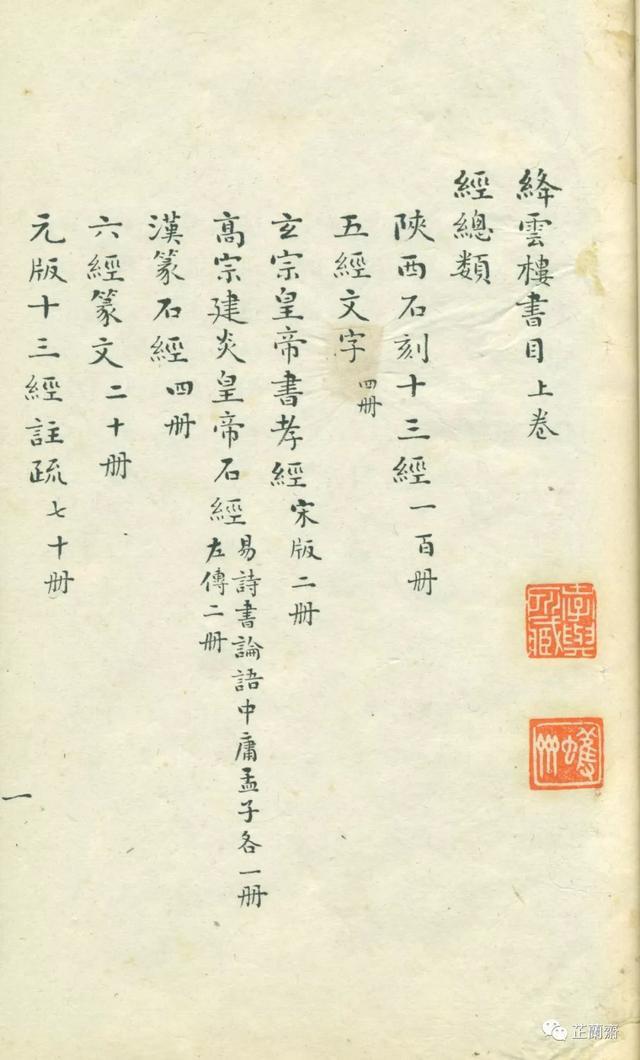 絳雲樓書目上卷
經總類
陝西石刻十三經一百册
五經文字四册
玄宗皇帝書孝經宋版二册
高宗建炎皇帝石經易詩書論語中庸孟子各一册
左傳二册
漢篆石經四册
六經篆文二十册
元版十三經註疏七十册
一
芷蘭齋